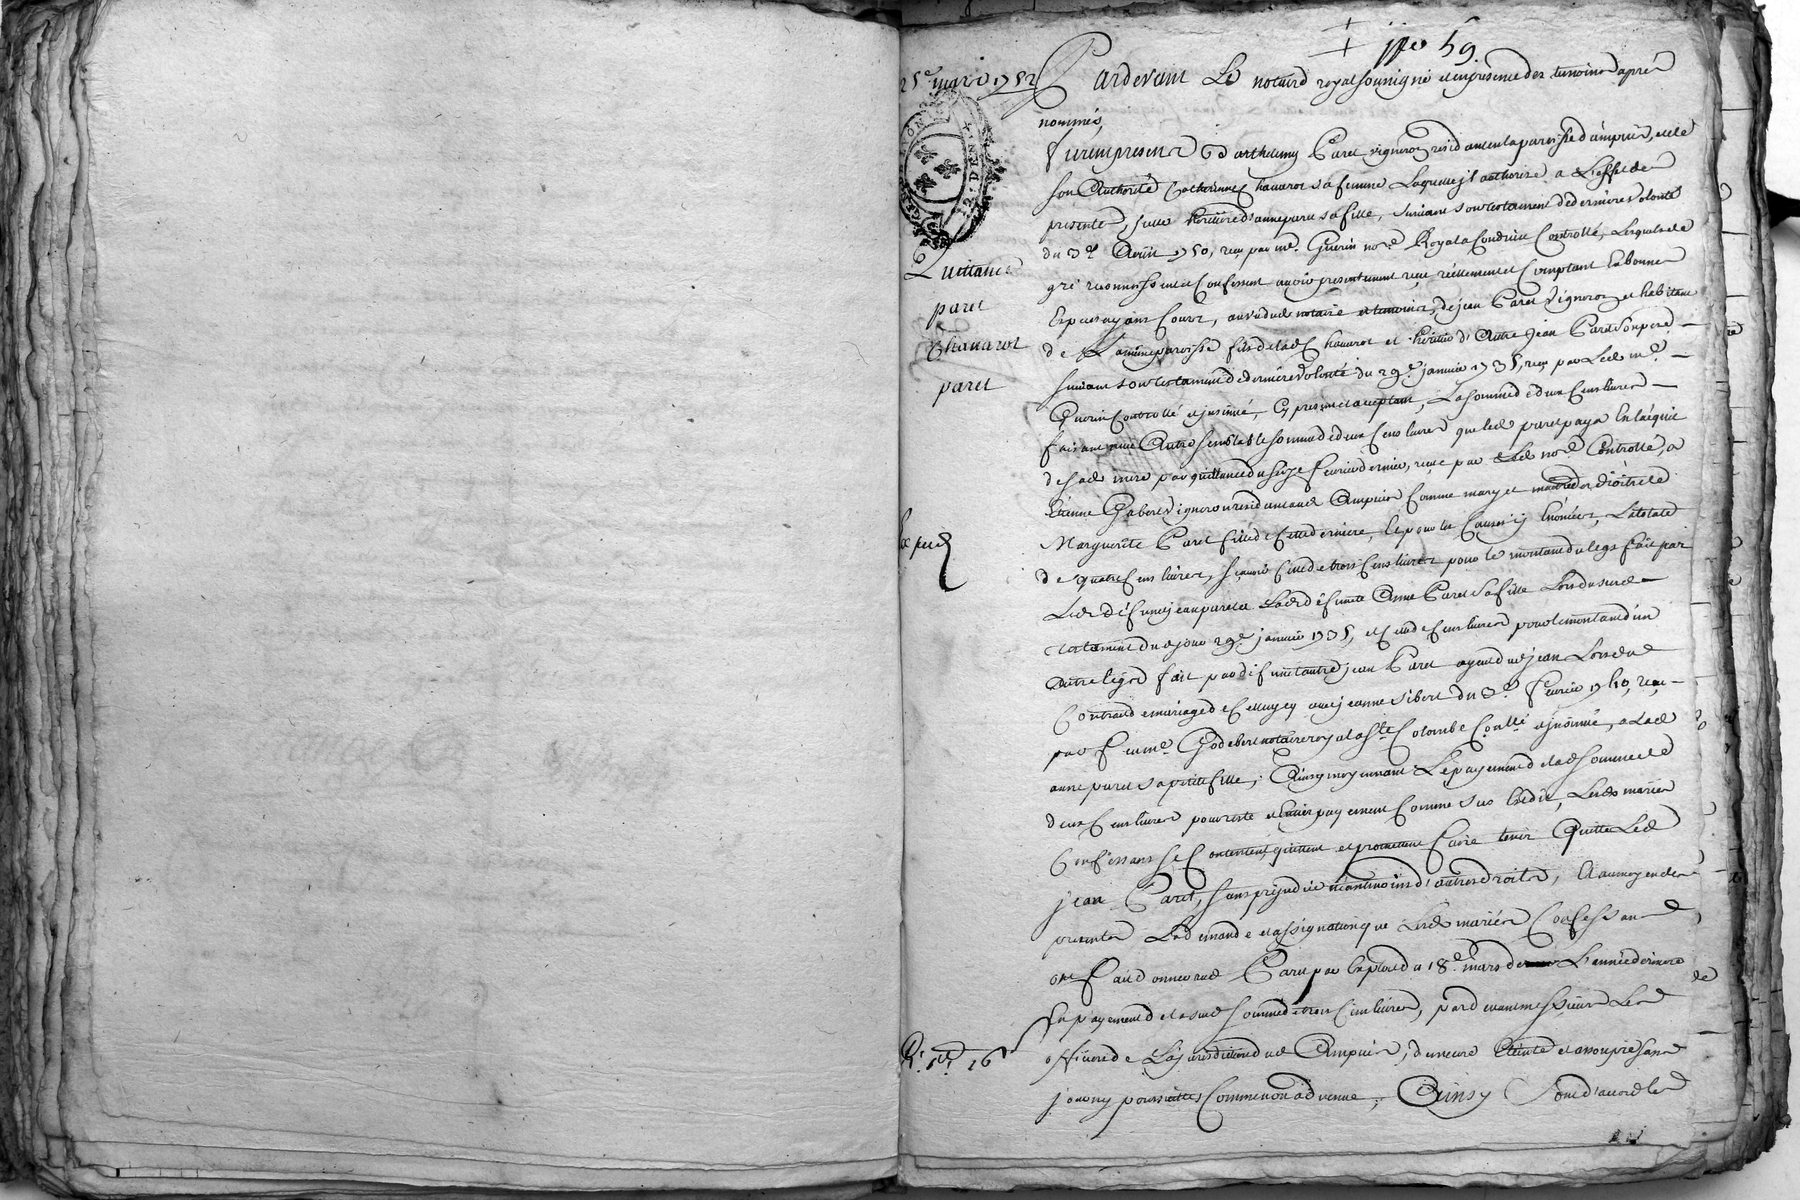 59
25e mars 1752
Pardevant Le notaire royal soussigné et en presence des temoins après
nommés,
furent presents Barthelemy Paret vigneron residant en la paroisse d'ampuis, et de
son Authorité Catherine Chavarot sa femme Laquelle il authorise a L'effet des
presentes, icelle heritiere d'anne paret sa fille, suivant son testament de derniere volonté
du 3e Avril 1750, reçu par me. Guerin nore. Royal a Condrieu Controllé, Lesquels de
gré reconnoissent et Confessent avoir presentement reçu réellement et Comptant En bonnes
Especes ayans Cours, au vû dud. notaire et temoins, de jean Paret vigneron et habitant
de La même paroisse fils de lad. Chavarot et héritier d'Autre jean Paret son pere,
suivant son testament de derniere volonté du 29e janvier 1735, reçu par Led. me.
Guerin Controllé et insinué, Cy present et acceptant, La somme de deux Cens livres
faisant avec Autre semblable somme de deux Cens livres que led. paret paya En l'acquit
de sad. mere par quittance du seize fevrier dernier, reçue par Led. nore. Controllé, a
Etienne Gabert vigneron residant aud. Ampuis Comme mary et maitre des droits de
Marguerite Paret fille de Cette derniere, Et pour les Causes y Enoncées, La totale
de quatre Cens livres, sçavoir Celle de trois Cens livres pour le montant du legs fait par
Led. défunt jean paret a Lad. défunte Anne Paret sa fille Lors de sond.
testament dud. jour 29e janvier 1735, et Celle de Cens livres pour le montant d'un
Autre legs fait par défunt autre jean Paret ayeul dud. jean Lors du
Contrat de mariage de Celluy cy avec jeanne Sibert du 3e. fevrier 1740, reçu
par feu me. Godebert notaire royal a Ste Colombe Conllé et insinué, a Lad.
anne paret sa petite fille; Ainsy moyennant Le payement de lad. somme de
deux Cens livres pour reste et Entier payement Comme sus Est dit, Lesd. mariés
Confessans se Contentent quittent et promettent faire tenir Quitte Led.
jean Paret, sans préjudice néantmoins d'autres droits, Et au moyen des
presentes La demande et assignation que Lesd. mariés Confessans
ont fait donner aud. Paret par Exploit du 18e. mars de L'année derniere
En payement de lasud. somme de trois Cens livres, pardevant messieurs Les
officiers de La jurisdiction dud. Ampuis, demeure Eteinte et assoupie sans
y pouvoir poursuittes Comme non advenue; Ainsy Sont d'accord les
Quittance
paret
Chavarot
paret